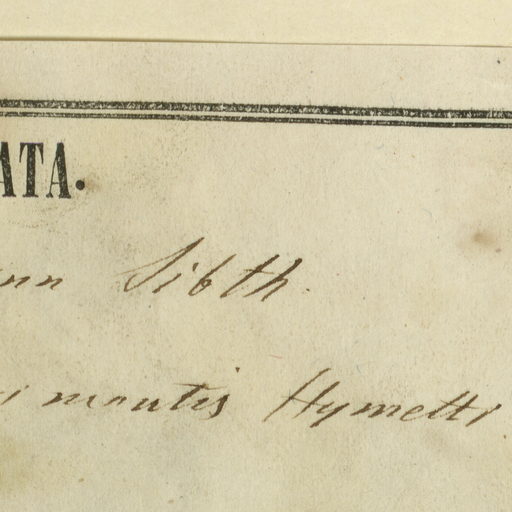 ATA.
nn Sibth.
montis Hymetti